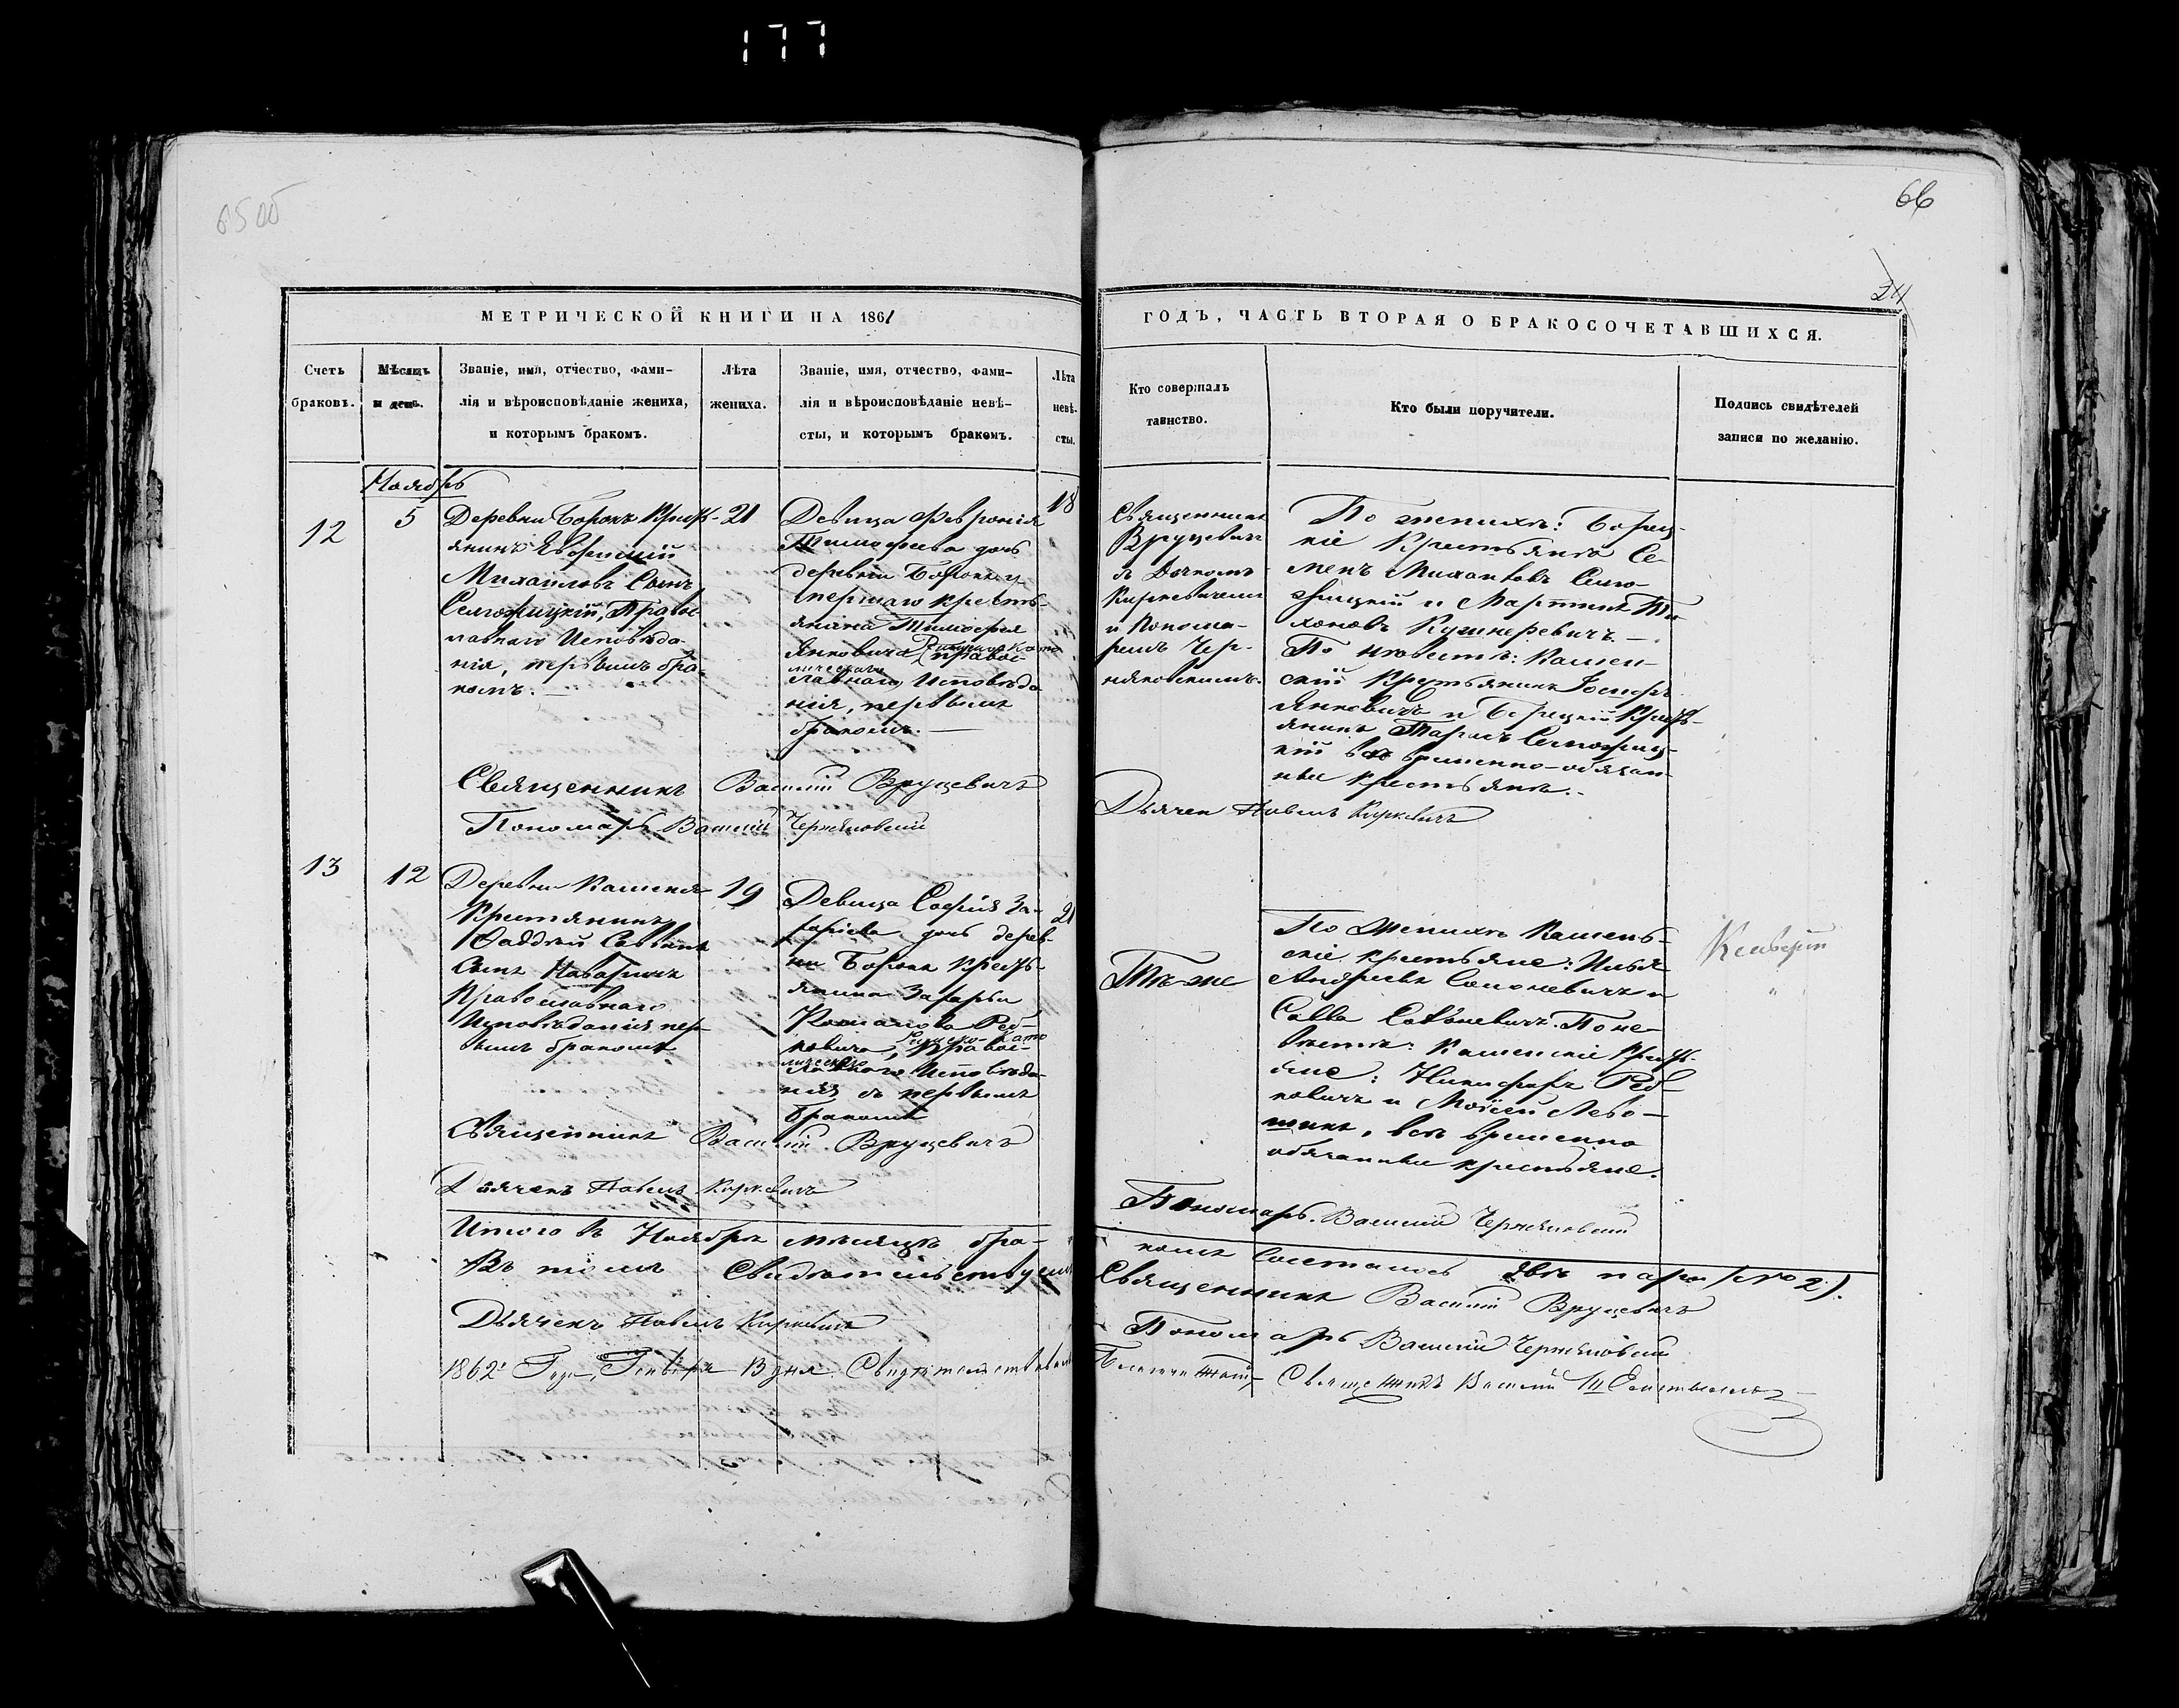 177
66
24
МЕТРИЧЕСКОЙ КНИГИ НА 1861
ГОДЪ, ЧАСТЬ ВТОРАЯ О БРАКОСОЧЕТАВШИХСЯ.
Счетъ
браковъ.
Мѣсяцъ
и день.
Званіе, имя, отчество, фами-
лія и вѣроисповѣданіе жениха,
и которымъ бракомъ.
Лѣта
жениха.
Званіе, имя, отчество, фами-
лія и вѣроисповѣданіе невѣ-
сты, и которымъ бракомъ.
Лѣта
невѣ-
сты.
Кто совершалъ
таинство.
Кто были поручители.
Подпись свидѣтелей
записи по желанію.
Ноябрь
12
5
Деревни Борокъ Крест-
янинъ
Михаиловъ Сынъ
Правос-
лавнаго Исповѣда-
нія, первымъ бра-
комъ.
21
Девица Феврoнія
Тимофеева дочь
деревни
крестъ-
янина Тимофея
Янковича Римско Като
правос-
лическаго
лавнаго Исповѣда-
нія, первымъ
бракомъ.
18
Священникъ
Вруцевичъ
съ Дьячкомъ
Киркевичемъ
и Понома-
ремъ Чер-
няковскимъ.
По женихѣ:
Крестьяне Се-
менъ Михаиловъ
и Мартинъ Ти-
хоновъ Кушнеревичъ.
По невестѣ: Камен-
скій Крестьянинъ Іосифъ
Янковичъ и Борецкій Крест-
янинъ Тарасъ
временно-обязан-
ные крестьяне.
Священникъ Василій Вруцевичъ
Дьячекъ Павелъ Киркевичъ
Пономарь Василій Черняковскій
13
12
Деревни Каменя
Крестянинъ
Фаддей Саввинъ
Сынъ
Православнаго
Исповѣданія пер-
вымъ бракомъ
19
Девица Софія За-
харіева дочь дерев-
ни Борокъ Крест-
янина Захарія
Романова Реб-
ковича, Римско-Като
правос-
лическаго
лавнаго Исповѣда-
нія первымъ
бракомъ
21
Тѣ-же
По Женихѣ Камен-
скіе крестьяне: Илья
Андреевъ и
Савва По не-
вестѣ: Каменскіе Крест-
яне: Никифоръ Реб-
ковичъ и Моисей Лево-
шикъ, всѣ временно
обязанные крестьяне.
Священникъ Василій Вруцевичъ
Дьячекъ Павелъ Киркевичъ
Пономарь Василій Черняковскій
Итого въ Ноябрѣ месяцѣ бра-
комъ Сочеталось двѣ пары (№ 2).
Въ томъ Свидѣтельствуемъ
Священникъ Василій Вруцевичъ
Дьячекъ Павелъ Киркевичъ
Пономарь Василій Черняковскій
1862 Года, Генваря 13 дня Свидѣтельствовалъ
Благочинный Священникъ Василій